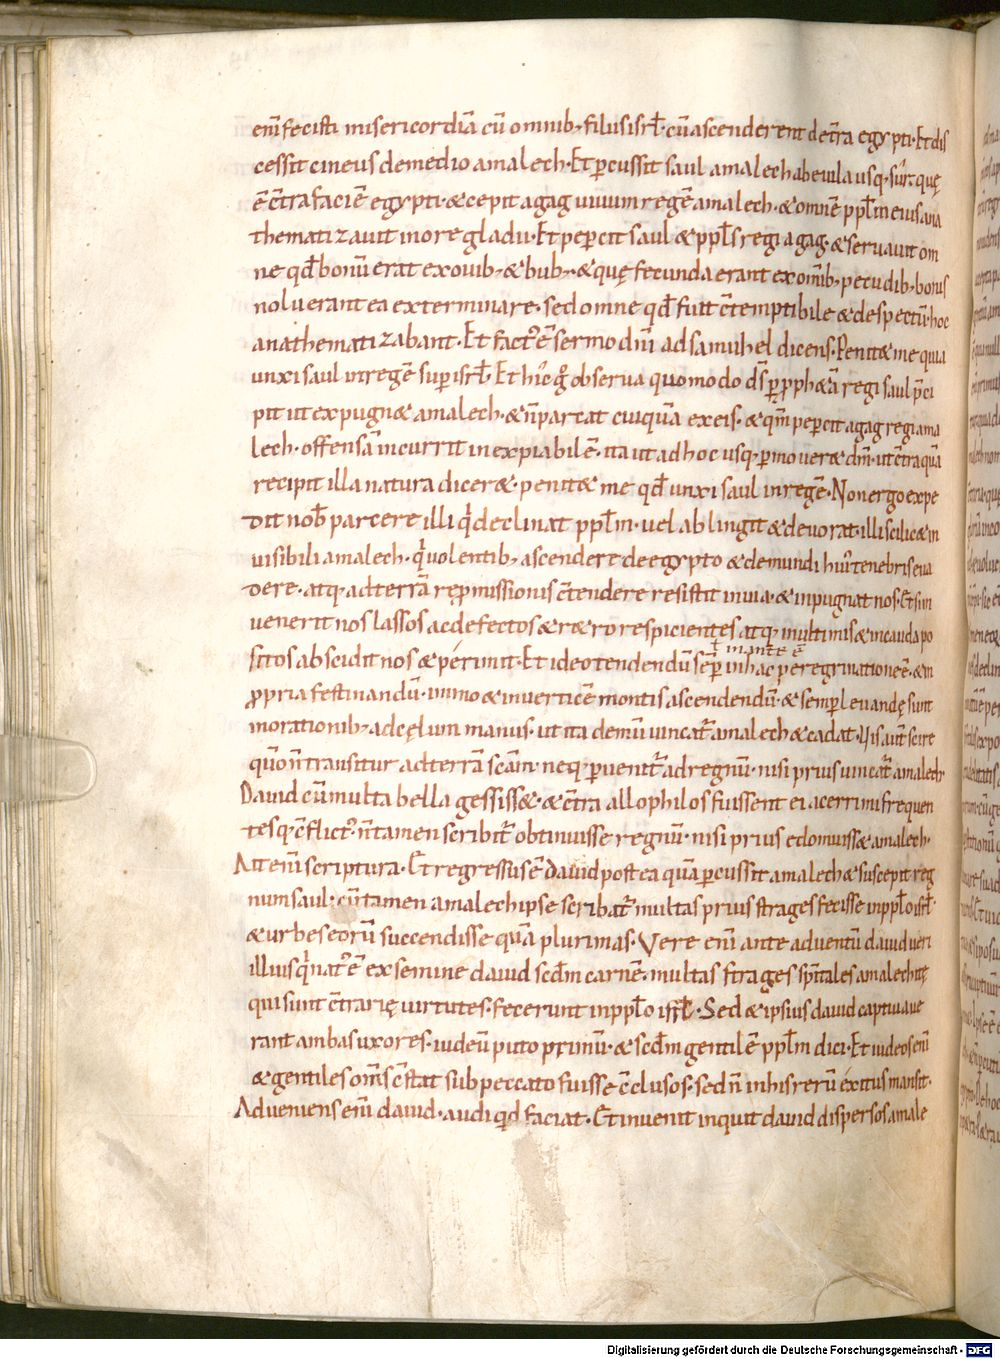 eni͂ fecisti misericordiā cū omnib; filiis isrl̄. cū ascenderent de tr̄a egypti. Et dis
cessit cineus de medio amalech. Et p̱cussit saul amalech ab euila usq; sūr. quę
ē c̄tra faciē egypti. & cepit agag uiuum regē amalech. & omnē ppl̄m eius ana
thematizauit in ore gladii. Et pep̱cit saul & ppl̄s regi agag. & seruauit om
ne qd̄ bonū erat ex ouib; & bub; & quę fecunda erant ex om̄ib; pecudib; bonis
noluerant ea exterminare. sed omne qd̄ fuit c̄temptibile & despectū. hoc
anathematizabant. Et fact' ē sermo dn̄i ad samuhel dicens. Penit& me quia
unxi saul in regē sup̱ isrl̄. Et hic g̊ obserua quomodo ds̄ p̱ pph&ā regi saul p̄ci
pit ut expugn& amalech. & n̄ parcat cuiquā ex eis. & qm̄ pep̱cit agag regi ama
lech. offensā incurrit inexpiabilē. ita ut ad hoc usq; p̱mouer& dm̄. ut c̄tra quā
recipit illa natura dicer&. penit& me qd̄ unxi saul in regē. Non ergo expe
dit nob̄ parcere illi qi declinat ppl̄m. uel ablingit & deuorat. illi scilic& in
uisibili amalech. qi uolentib; ascendere de egypto & de mundi hui' tenebris eua
dere. atq; ad terrā rep̱missionis c̄tendere resistit in uia. & inpugnat nos. Et si in
uenerit nos lassos ac defectos & r&ro respicientes atq; in ultimis & in cauda po
sitos abscidit nos & perimit. Et ideo tendendū semp̱ in hac peregrinatione ē. & in
ꝓpria festinandū. immo & in uerticē montis ascendendū. & semper leuandę sunt
in orationib; ad cęlum manus. ut ita demū uincat͛ amalech & cadat. Nis aut͞ scire
quō n̄ transitur ad terrā scām. neq; p̱uenit͛ ad regnū. nisi prius uincat͛ amalech.
Dauid cū multa bella gessiss&. & c̄tra allophilos fuissent ei acerrimi frequen
tesq; c̄flict'. n̄ tamen scribit͛ obtinuisse regnū. nisi prius edomuiss& amalech.
Ait eni͂ scriptura. Et regressus ē dauid postea quā p̱cussit amalech & suscepit reg
num saul. cū tamen amalech ipse scribat͛ multas prius strages fecisse in ppl̄o isrl̄.
& urbes eorū succendisse quā plurimas. Vere eni͂ ante aduentū dauid ueri
illius qi nat' ē ex semine dauid scd̄m carnē. multas strages sp̄itales amalechitę
qui sunt c̄trarię uirtutes. fecerunt in ppl̄o isrl̄. Sed & ipsius dauid captiuaue
rant ambas uxores. iudeū puto primū. & scd̄m gentilē ppl̄m dici. Et iudeos eni͂
& gentiles om̄s c̄stat sub peccato fuisse c̄clusos. sed n̄ in his rerū exitus mansit.
Adueniens eni͂ dauid. audi qid faciat. Et inuenit inquit dauid dispersos amale
Digitalisierung gefördert durch die Deutsche Forschungsgemeinschaft - DFG